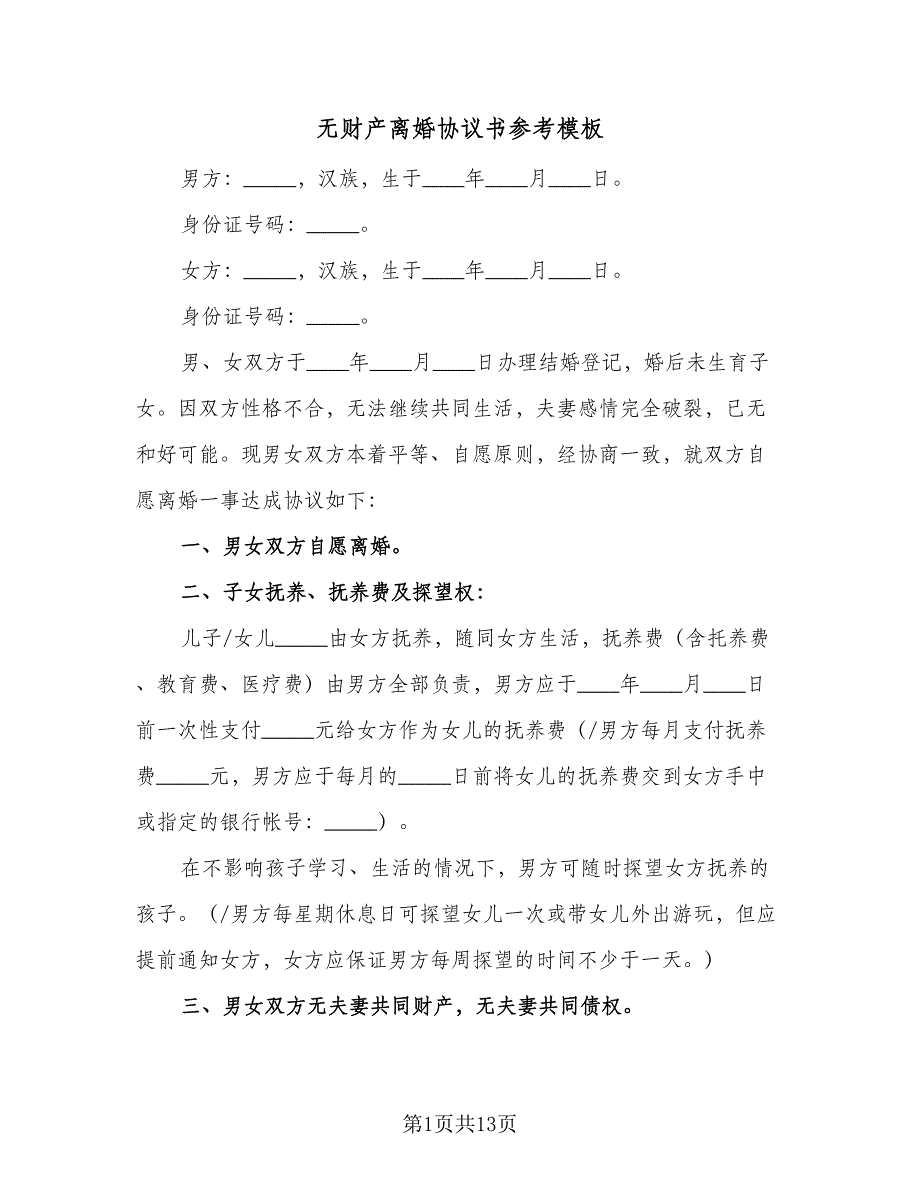 无财产离婚协议书参考模板
男方：_____，汉族，生于____年____月____日。
身份证号码：_____。
女方：_____，汉族，生于____年____月____日。
身份证号码：_____。
男、女双方于____年____月____日办理结婚登记，婚后未生育子
女。因双方性格不合，无法继续共同生活，夫妻感情完全破裂，已无
和好可能。现男女双方本着平等、自愿原则，经协商一致，就双方自
愿离婚一事达成协议如下：
一、男女双方自愿离婚。
二、子女抚养、抚养费及探望权：
儿子/女儿_____由女方抚养，随同女方生活，抚养费（含托养费
、教育费、医疗费）由男方全部负责，男方应于____年____月____日
前一次性支付_____元给女方作为女儿的抚养费（/男方每月支付抚养
费_____元，男方应于每月的_____日前将女儿的抚养费交到女方手中
或指定的银行帐号：_____）。
在不影响孩子学习、生活的情况下，男方可随时探望女方抚养的
孩子。（/男方每星期休息日可探望女儿一次或带女儿外出游玩，但应
提前通知女方，女方应保证男方每周探望的时间不少于一天。）
三、男女双方无夫妻共同财产，无夫妻共同债权。
第1页共13页